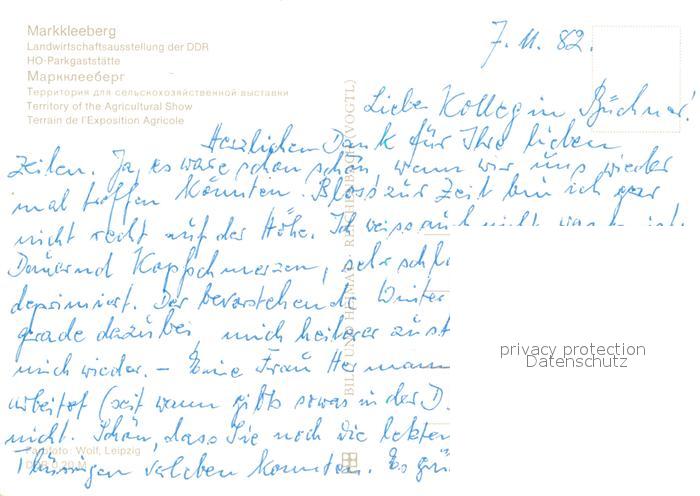 Markkleeberg
Landwirtschaftsausstellung der DDR
HO-Parkgaststätte
Маркклееберг
Территория для сельскохозяйственной выставки
Territory of the Agricultural Show
Terrain de l'Exposition Agricole
7. 11. 82.
Liebe Kollegin Büchner!
Herzlichen Dank für Ihre lieben
Zeilen. Ja, es wäre schon schön, wenn wir uns wieder
mal treffen könnten. Bloss zur Zeit bin ich gar
nicht recht auf der Höhe. Ich weiss auch nicht was es ist.
Dauernd Kopfschmerzen, sehr
deprimiert. Der bevorstehende Winter
gerade dazu bei, mich heiterer zu
mich wieder. – Eine Frau Hermann
arbeitet (seit wann gibts sowas in der D.
nicht. Schön, dass Sie noch die letzten
konnten. Es
BILD UND HEIMAT REICHENBACH (VOGTL)
Wolf, Leipzig
privacy protection
Datenschutz